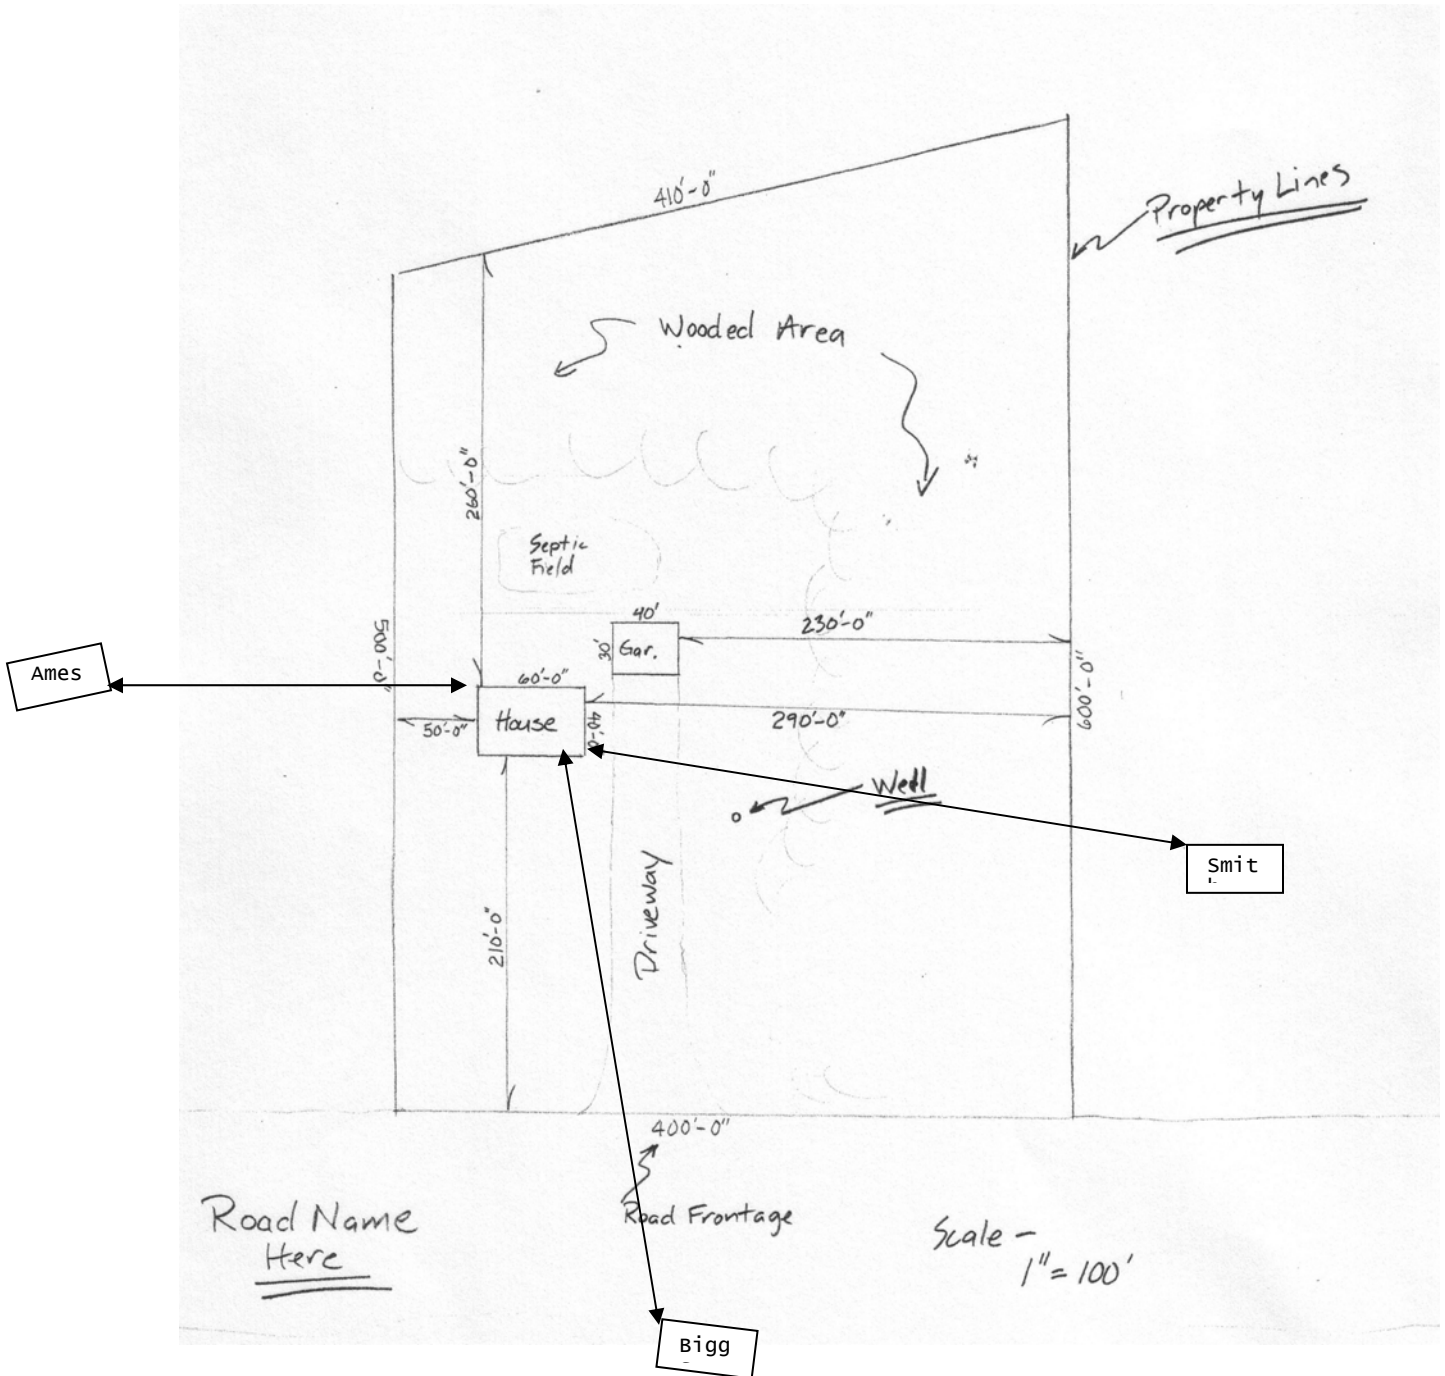 410'-0"
Property Lines
Wooded Area
260'-0"
Septic
Field
40'
30'
Gar.
230'-0"
500'-0"
Ames
60'-0"
House
40'-0
50'-0"
290'-0"
600'-0"
Well
Smit
210'-0"
Driveway
400'-0"
Road Frontage
Road Name
Here
Scale -
1" = 100'
Bigg